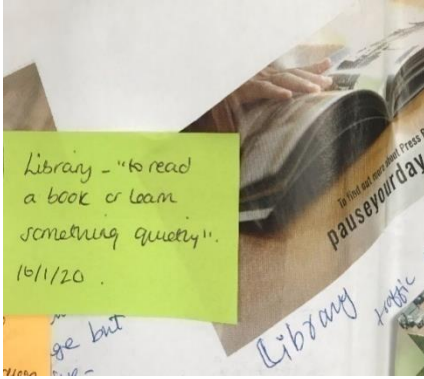 Library - "to read
a book or learn
something quietly".
16/1/20.
To find out more about Press P
pauseyourday
Library
traffic
ge but